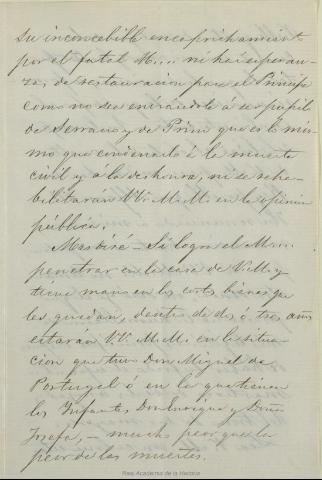 su inconcebible encaprichamiento
por el fatal M.... ni hai esperan-
za, de restauracion para el Principe
como no sea enviandole á ser pupilo
de Serrano y de Prim que es lo mis-
mo que condenarlo á la muerte
civil y a la deshonra, ni se reha-
bilitarán VV. M.M. en la opinion
publica.
Mas diré - Si logra el M....
penetrar en la casa de V.M. y
tiene mano en los cortos bienes que
les quedan, dentro de dos ó tres años
estarán V.V. M.M. en la situa-
cion que tuvo Don Miguel de
Portugal ó en la que tienen
los Infantes, Don Enrique y Doña
Josefa, - mucho peor que la
peor de las muertes.
Real Academia de la Historia